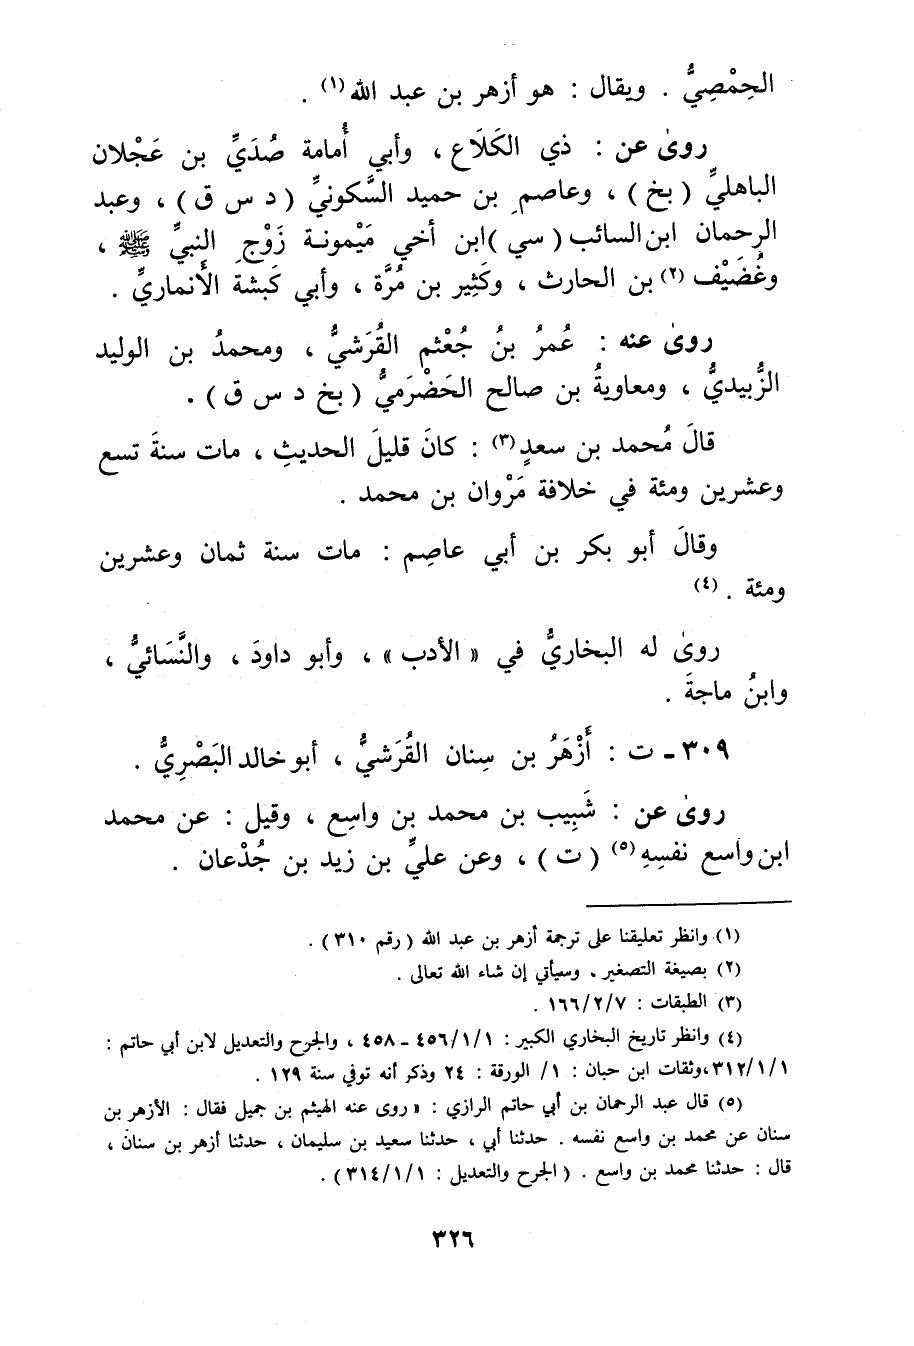 الحِمْصِيُّ . ويقال : هو أزهر بن عبد الله (١) .
روىٰ عن : ذي الكَلَاع ، وأبي أُمامة صُدَيِّ بن عَجْلان
الباهليِّ ( بخ ) ، وعاصمِ بن حميد السَّكونيِّ ( د س ق ) ، وعبد
الرحمان ابن السائب ( سي ) ابن أخي مَيْمونة زَوْجِ النبيِّ ﷺ ،
وغُضَيْف (٢) بن الحارث ، وكَثِير بن مُرَّة ، وأبي كَبشة الأَنماريِّ .
روىٰ عنه : عُمرُ بنُ جُعْثم القُرَشيُّ ، ومحمدُ بن الوليد
الزُّبيديُّ ، ومعاويةُ بن صالح الحَضْرَميُّ ( بخ د س ق ) .
قالَ مُحمد بن سعدٍ (٣) : كانَ قليلَ الحديثِ ، مات سنةَ تسع
وعشرين ومئة في خلافة مَرْوان بن محمد .
وقالَ أبو بكر بن أبي عاصِم : مات سنة ثمان وعشرين
ومئة . (٤)
روىٰ له البخاريُّ في « الأدب » ، وأبو داودَ ، والنَّسَائيُّ ،
وابنُ ماجةَ .
٣٠٩ - ت : أَزْهَرُ بن سِنان القُرَشيُّ ، أبو خالد البَصْرِيُّ .
روىٰ عن : شَبِيب بن محمد بن واسِع ، وقيل : عن محمد
ابن واسع نفسِهِ (٥) ( ت ) ، وعن عليِّ بن زيد بن جُدْعان .
(١) وانظر تعليقنا على ترجمة أزهر بن عبد الله ( رقم ٣١٠ ) .
(٢) بصيغة التصغير ، وسيأتي إن شاء الله تعالى .
(٣) الطبقات : ١٦٦/٢/٧ .
(٤) وانظر تاريخ البخاري الكبير : ٤٥٦/١/١ - ٤٥٨ ، والجرح والتعديل لابن أبي حاتم :
٣١٢/١/١ ، وثقات ابن حبان : ١/ الورقة : ٢٤ وذكر أنه توفي سنة ١٢٩ .
(٥) قال عبد الرحمان بن أبي حاتم الرازي : « روى عنه الهيثم بن جميل فقال : الأزهر بن
سنان عن محمد بن واسع نفسه . حدثنا أبي ، حدثنا سعيد بن سليمان ، حدثنا أزهر بن سنان ،
قال : حدثنا محمد بن واسع . ( الجرح والتعديل : ٣١٤/١/١ ) .
٣٢٦